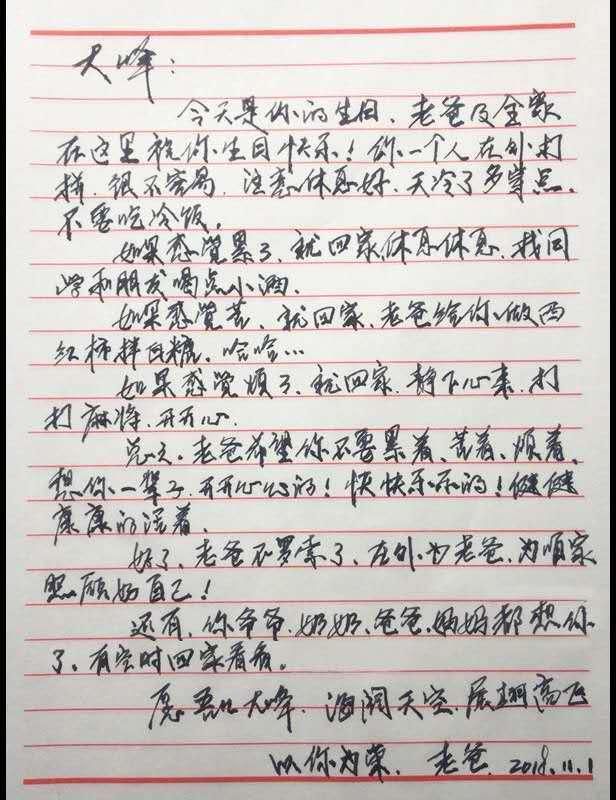 大峰：
今天是你的生日、老爸及全家
在这里祝你生日快乐！你一个人在外打
拼、很不容易、注意休息好、天冷了多穿点、
不要吃冷饭。
如果感觉累了、就回家休息休息、找同
学和朋友喝点小酒、
如果感觉苦、就回家、老爸给你做西
红柿拌白糖、哈哈…
如果感觉烦了、就回家、静下心来、打
打麻将、开开心、
总之、老爸希望你不要累着、苦着、烦着、
想你一辈子、开开心心的！快快乐乐的！健健
康康的活着、
好了、老爸不罗索了、在外为老爸、为咱家
照顾好自己！
还有、你爷爷、奶奶、爸爸、妈妈都想你
了、有空时回家看看。
愿吾儿大峰、海阔天空、展翅高飞
以你为荣、老爸、2018.11.1